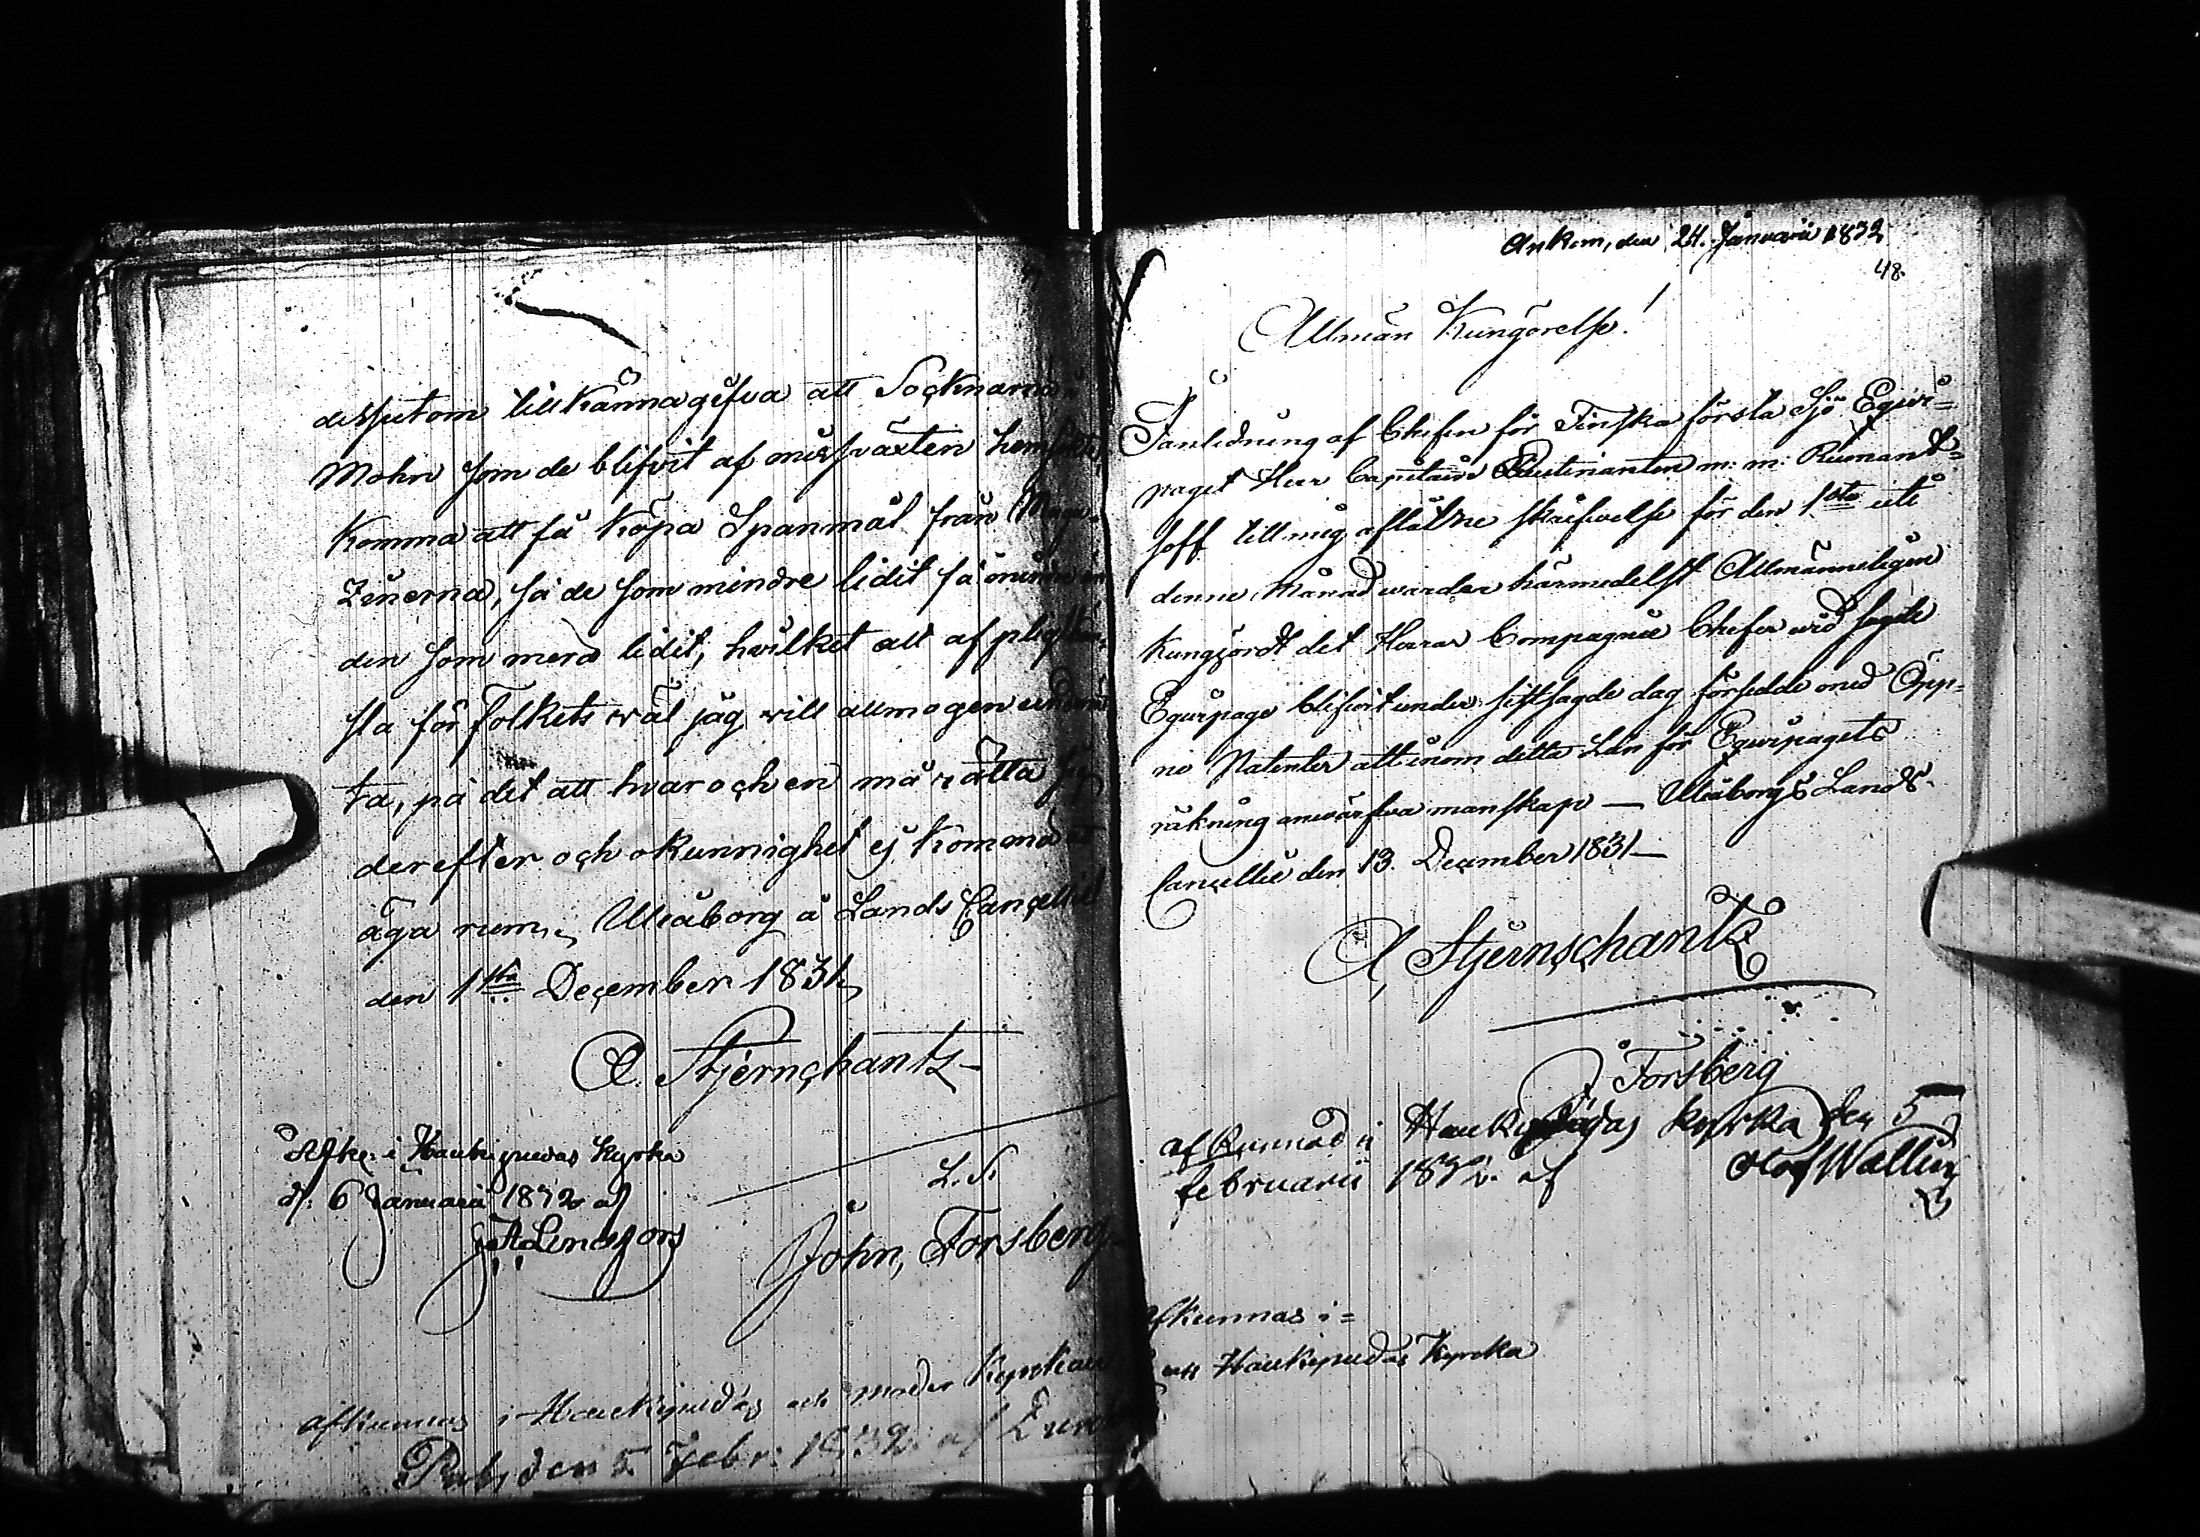 dessutom tillkännagifva att Socknarna
Mohn som de blifvit af missväxten
Komma att få köpa Spanmål från
Zinerna, så de som mindre lidit få mindre än
den som mera lidit, hvilket allt af
sla för Folkets wäl jag will allmogen
ta, på det att hvar och en må rätta
derefter och okunnighet ej komma
äga rum, Uleåborg å Lands Cancellie
den 1sta December 1831
A. Stjernchantz
Afk. i Haukipudas Kyrka
d. 6 Januarii 1832 af
L. S.
John, Forsberg
afkunnas i Haukipudas och moder Kyrkan
Publ. den 5 Febr: 1832 af
Ankom, den 24. Januarii 1832
48.
Allmän Kungörelse!
I anledning af Chefen för Finska första Sjö Equi=
paget Herr Capitaine Lieutenanten m: m: Rumant=
soff till mig aflåtne skrifvelse för den 1sta uti
denne Månad warder härmedelst Allmänneligen
Kungjordt det Herrar Compagnie Chefer wid sagde
Equipage blifvit under sistsagde dag försedde med Öpp=
ne Patenter att inom detta Län för Equipagets
räkning anvärfva manskap — Uleåborgs Lands
Cancellie den 13. December 1831 —
A, Stjernschantz
J Forsberg
afkunnad i Haukipudas kyrka den 5
februarii 1832. af Olof Wallin
afkunnas i =
Haukipudas Kyrka